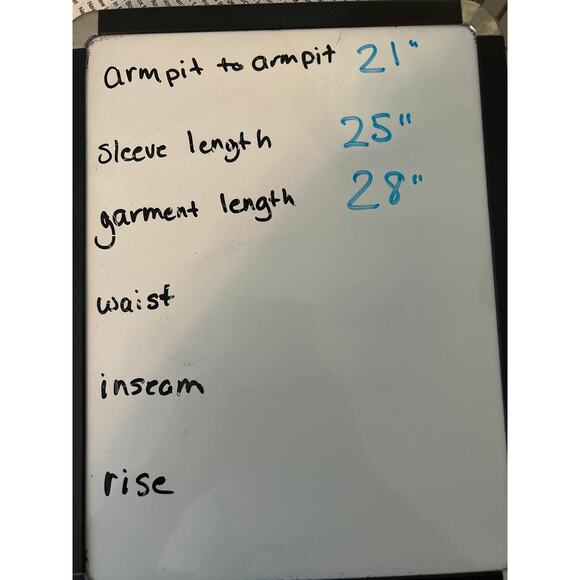 armpit to armpit 21"
sleeve length 25"
garment length 28"
waist
inseam
rise